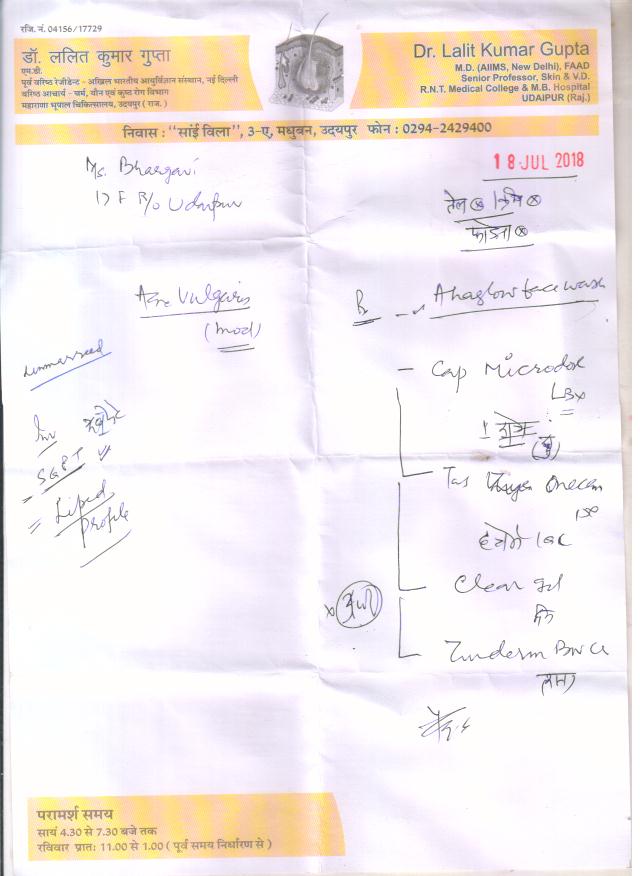 रजि. नं. 04156/17729
डॉ. ललित कुमार गुप्ता
एम.डी.
पूर्व वरिष्ठ रेजीडेन्ट - अखिल भारतीय आयुर्विज्ञान संस्थान, नई दिल्ली
वरिष्ठ आचार्य - चर्म, यौन एवं कुष्ठ रोग विभाग
महाराणा भूपाल चिकित्सालय, उदयपुर ( राज. )
Dr. Lalit Kumar Gupta
M.D. (AIIMS, New Delhi), FAAD
Senior Professor, Skin & V.D.
R.N.T. Medical College & M.B. Hospital
UDAIPUR (Raj.)
निवास : "सांई विला", 3-ए, मधुबन, उदयपुर फोन : 0294-2429400
18 JUL 2018
Ms. Bhargavi
F R/o Udaipur
तेल क्रीम
Acne Vulgaris
(mod)
Ahaglow face wash
Cap Microdox
LBX
Inv
SGPT
Lipid
Profile
Tas
Clear gel
परामर्श समय
सायं 4.30 से 7.30 बजे तक
रविवार प्रात: 11.00 से 1.00 ( पूर्व समय निर्धारण से )